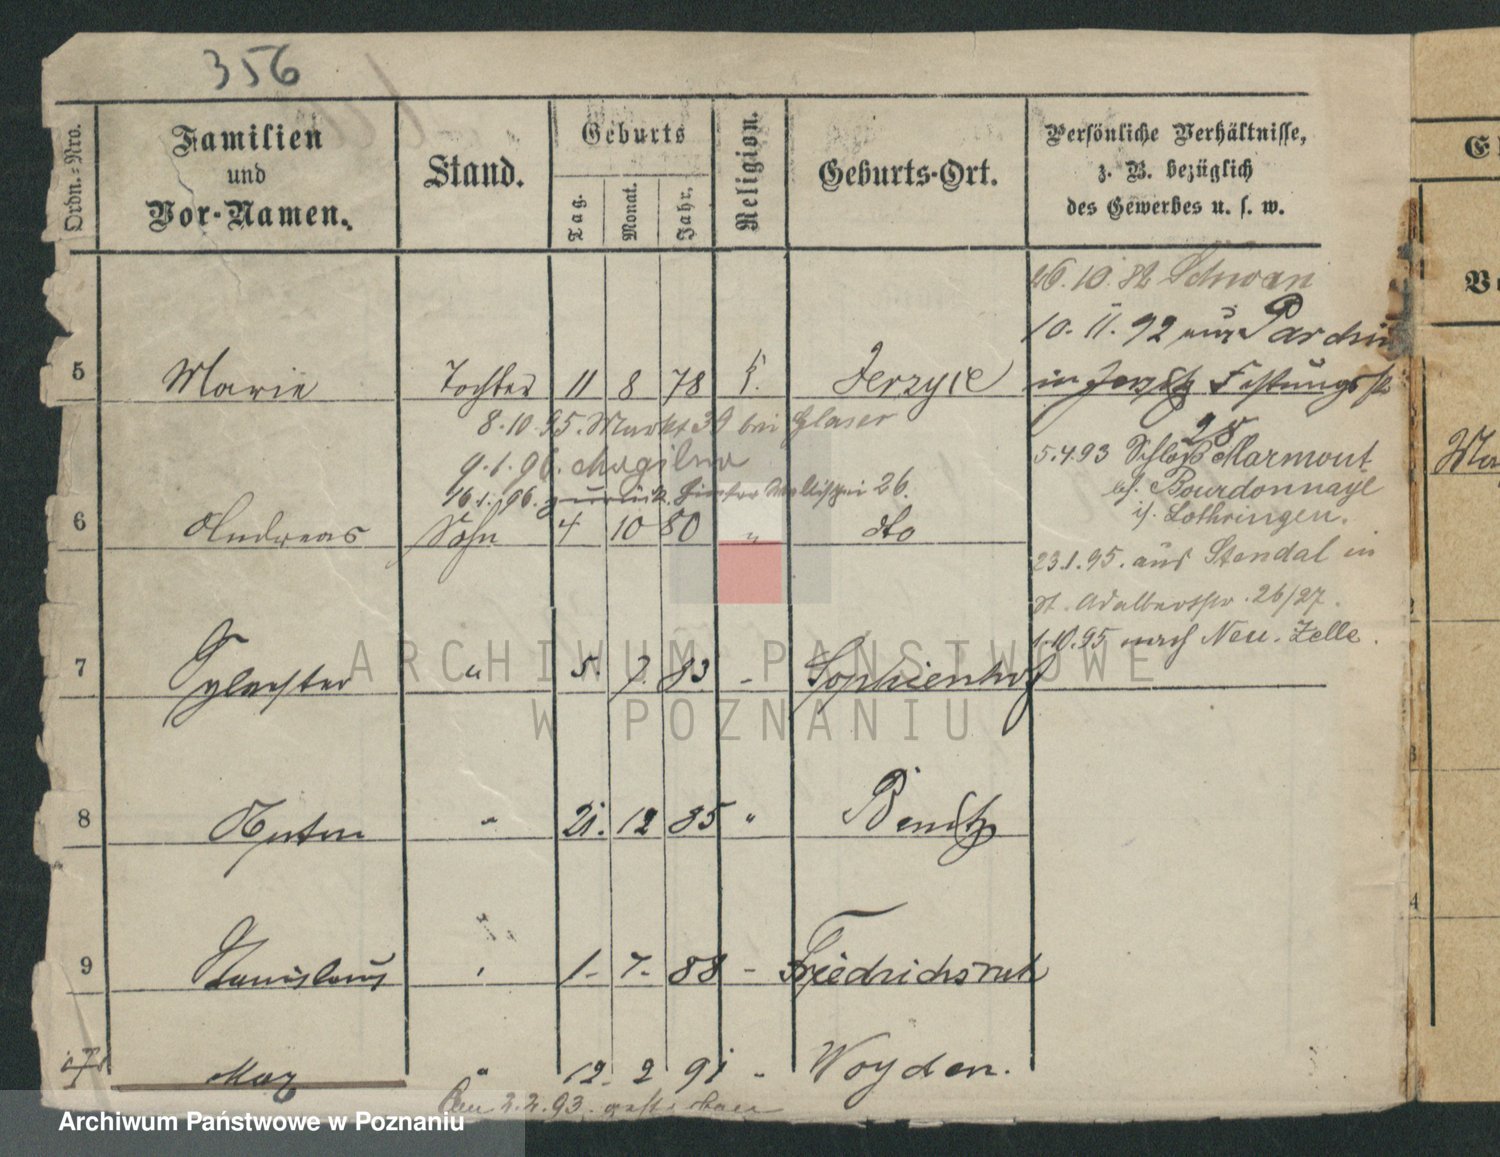 356
Ordn.-Nro.
Familien
und
Vor-Namen.
Stand.
Geburts
Tag.
Monat.
Jahr.
Religion.
Geburts-Ort.
Persönliche Verhältnisse,
z. B. bezüglich
des Gewerbes u. s. w.
26.10.82 Schwan
10.11.92 aus Parchim
5 Marie Tochter 11 8 78 k. Jerzyce in Festungsstr
28
8.10.95. Markt 39 bei Glaser
5.4.93 Schloß Marmont
9.1.96. Mogilno
bei Bourdonnaye
16.1.96. zurück. Hinter Wallischei 26.
i/. Lothringen.
6 Andreas Sohn 4 10 80 " dto
23.1.95. aus Stendal in
St. Adalbertstr. 26/27.
1.10.95 nach Neu-Zelle.
7 Sylvester " 5. 7 83 - Sophienhof
ARCHIWUM PAŃSTWOWE
W POZNANIU
8 Anton " 21. 12 85 " Benitz
9 Stanislaus " 1- 7- 88 - Friedrichsruh
Max " 12- 2 91 - Woyden.
Am 2.2.93. gestorben
Archiwum Państwowe w Poznaniu